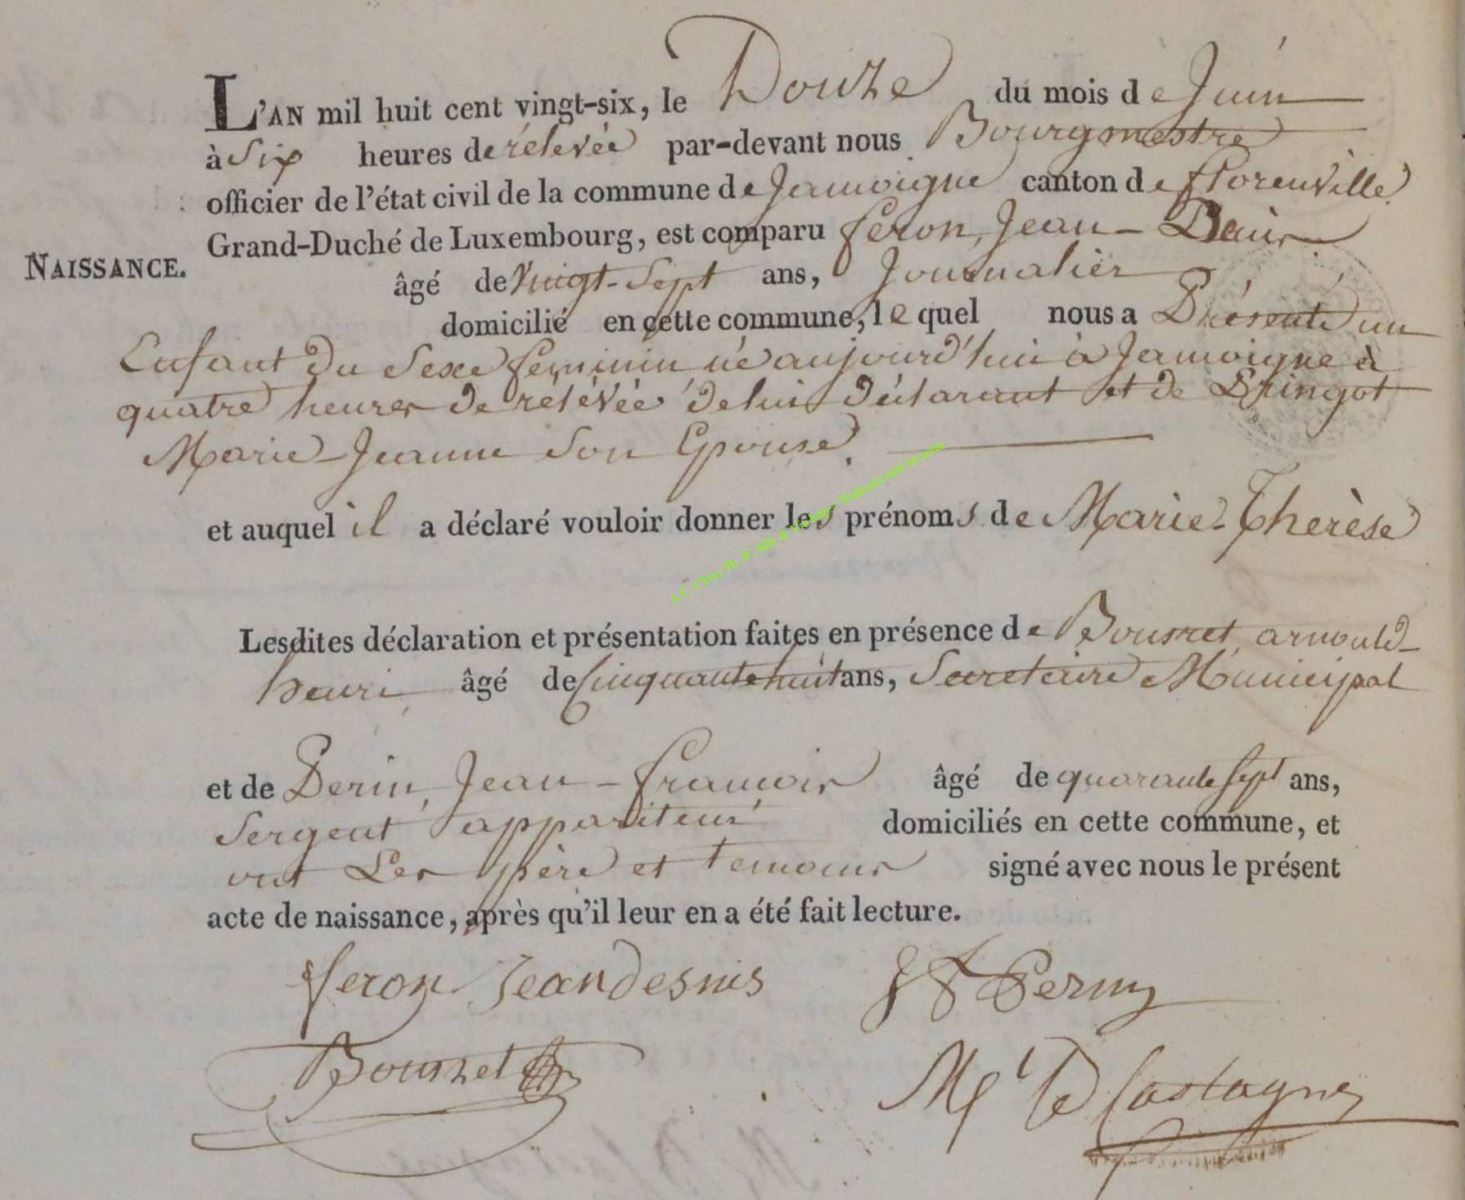 L'AN mil huit cent vingt-six, le Douze du mois de Juin
à Six heures de rélevée par-devant nous Bourgmestre
officier de l'état civil de la commune de Jamoigne canton de florenville
NAISSANCE.
Grand-Duché de Luxembourg, est comparu feron, Jean-Denis
âgé de Vingt-Sept ans, Journalier
domicilié en cette commune, le quel nous a Présenté un
Enfant du Sexe feminin né aujourd'hui à Jamoigne à
quatre heures de rélévée de lui déclarant et de Pringot
Marie-Jeanne Son Epouse.
et auquel il a déclaré vouloir donner les prénoms de Marie-Therèse
Lesdites déclaration et présentation faites en présence de Bourret arnould-
henri âgé de Cinquante huit ans, Secretaire Municipal
et de Perin, Jean-françois âgé de quarante Sept ans,
Sergent appariteur domiciliés en cette commune, et
ont Les père et temoins signé avec nous le présent
acte de naissance, après qu'il leur en a été fait lecture.
feron Jean desnis JF Perin
Bourret